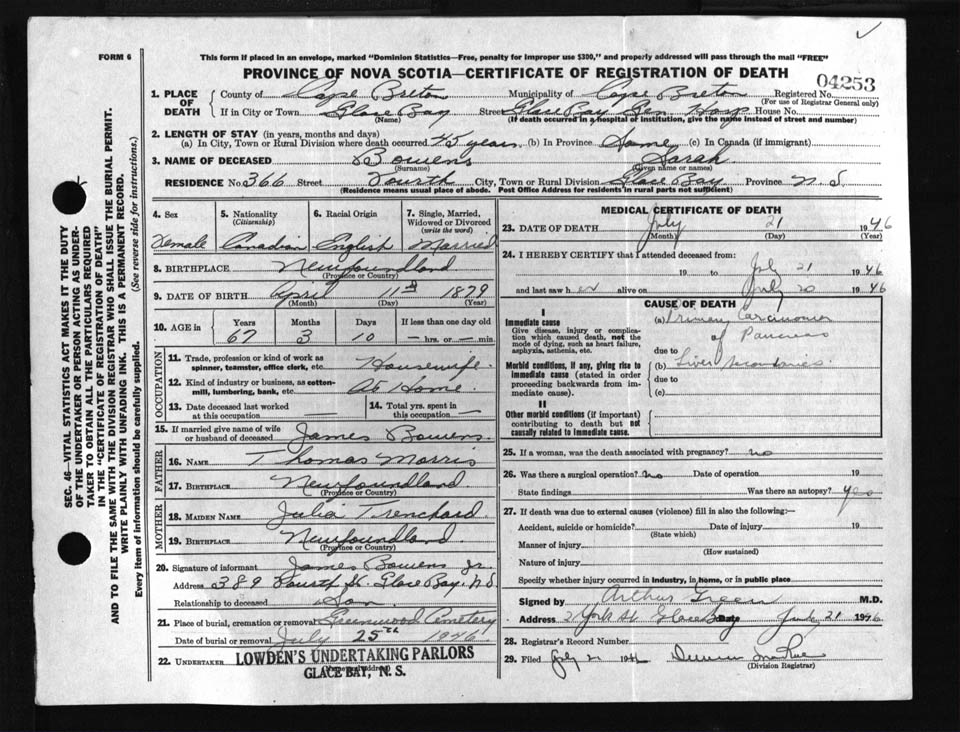 FORM 6
This form if placed in an envelope, marked "Dominion Statistics—Free, penalty for improper use $300," and properly addressed will pass through the mail "FREE"
PROVINCE OF NOVA SCOTIA—CERTIFICATE OF REGISTRATION OF DEATH
04253
1. PLACE OF DEATH
County of Cape Breton Municipality of Cape Breton Registered No.
(For use of Registrar General only)
If in City or Town Glace Bay Street Glace Bay Gen Hosp House No.
(Name) (If death occurred in a hospital or institution, give the name instead of street and number)
2. LENGTH OF STAY (in years, months and days)
(a) In City, Town or Rural Division where death occurred 45 years (b) In Province Same (c) In Canada (if immigrant)
3. NAME OF DECEASED Bowens Sarah
(Surname) (Given name or names)
RESIDENCE No 366 Street Fourth City, Town or Rural Division Glace Bay Province N.S
(Residence means usual place of abode. Post Office Address for residents in rural parts not sufficient)
SEC. 46—VITAL STATISTICS ACT MAKES IT THE DUTY
OF THE UNDERTAKER OR PERSON ACTING AS UNDER-
TAKER TO OBTAIN ALL THE PARTICULARS REQUIRED
IN THE "CERTIFICATE OF REGISTRATION OF DEATH"
AND TO FILE THE SAME WITH THE DIVISION REGISTRAR WHO SHALL ISSUE THE BURIAL PERMIT.
WRITE PLAINLY WITH UNFADING INK. THIS IS A PERMANENT RECORD.
Every item of information should be carefully supplied. (See reverse side for instructions.)
4. Sex 5. Nationality (Citizenship) 6. Racial Origin 7. Single, Married, Widowed or Divorced (write the word)
Female Canadian English Married
8. BIRTHPLACE Newfoundland
(Province or Country)
9. DATE OF BIRTH April 11th 1879
(Month) (Day) (Year)
10. AGE in Years Months Days If less than one day old
67 3 10 — hrs. or — min.
OCCUPATION
11. Trade, profession or kind of work as spinner, teamster, office clerk, etc. Housewife
12. Kind of industry or business, as cotton-mill, lumbering, bank, etc. At Home
13. Date deceased last worked at this occupation —
14. Total yrs. spent in this occupation —
15. If married give name of wife or husband of deceased James Bowens.
FATHER
16. NAME Thomas Morris
17. BIRTHPLACE Newfoundland
(Province or Country)
MOTHER
18. MAIDEN NAME Julia Trenchard
19. BIRTHPLACE Newfoundland
(Province or Country)
20. Signature of informant James Bowens Jr.
Address 389 Fourth St. Glace Bay. N.S.
Relationship to deceased Son.
21. Place of burial, cremation or removal Greenwood Cemetery
Date of burial or removal July 25th 1946
22. UNDERTAKER LOWDEN'S UNDERTAKING PARLORS
GLACE BAY, N. S.
MEDICAL CERTIFICATE OF DEATH
23. DATE OF DEATH July 21 1946
(Month) (Day) (Year)
24. I HEREBY CERTIFY that I attended deceased from:
19 to July 21 1946
and last saw her alive on July 20 1946
CAUSE OF DEATH
I
Immediate cause
Give disease, injury or complication which caused death, not the mode of dying, such as heart failure, asphyxia, asthenia, etc.
(a) Primary Carcinoma
of Pancreas
due to
Morbid conditions, if any, giving rise to immediate cause (stated in order proceeding backwards from immediate cause).
(b) Liver secondaries
due to
(c)
II
Other morbid conditions (if important) contributing to death but not causally related to immediate cause.
25. If a woman, was the death associated with pregnancy? no
26. Was there a surgical operation? no Date of operation 19
State findings Was there an autopsy? yes
27. If death was due to external causes (violence) fill in also the following:—
Accident, suicide or homicide? Date of injury 19
(State which)
Manner of injury
(How sustained)
Nature of injury
Specify whether injury occurred in industry, in home, or in public place
Signed by Arthur Green M.D.
Address 21 York St Glace Bay Date July 21 1946
28. Registrar's Record Number
29. Filed July 21 194
(Division Registrar)